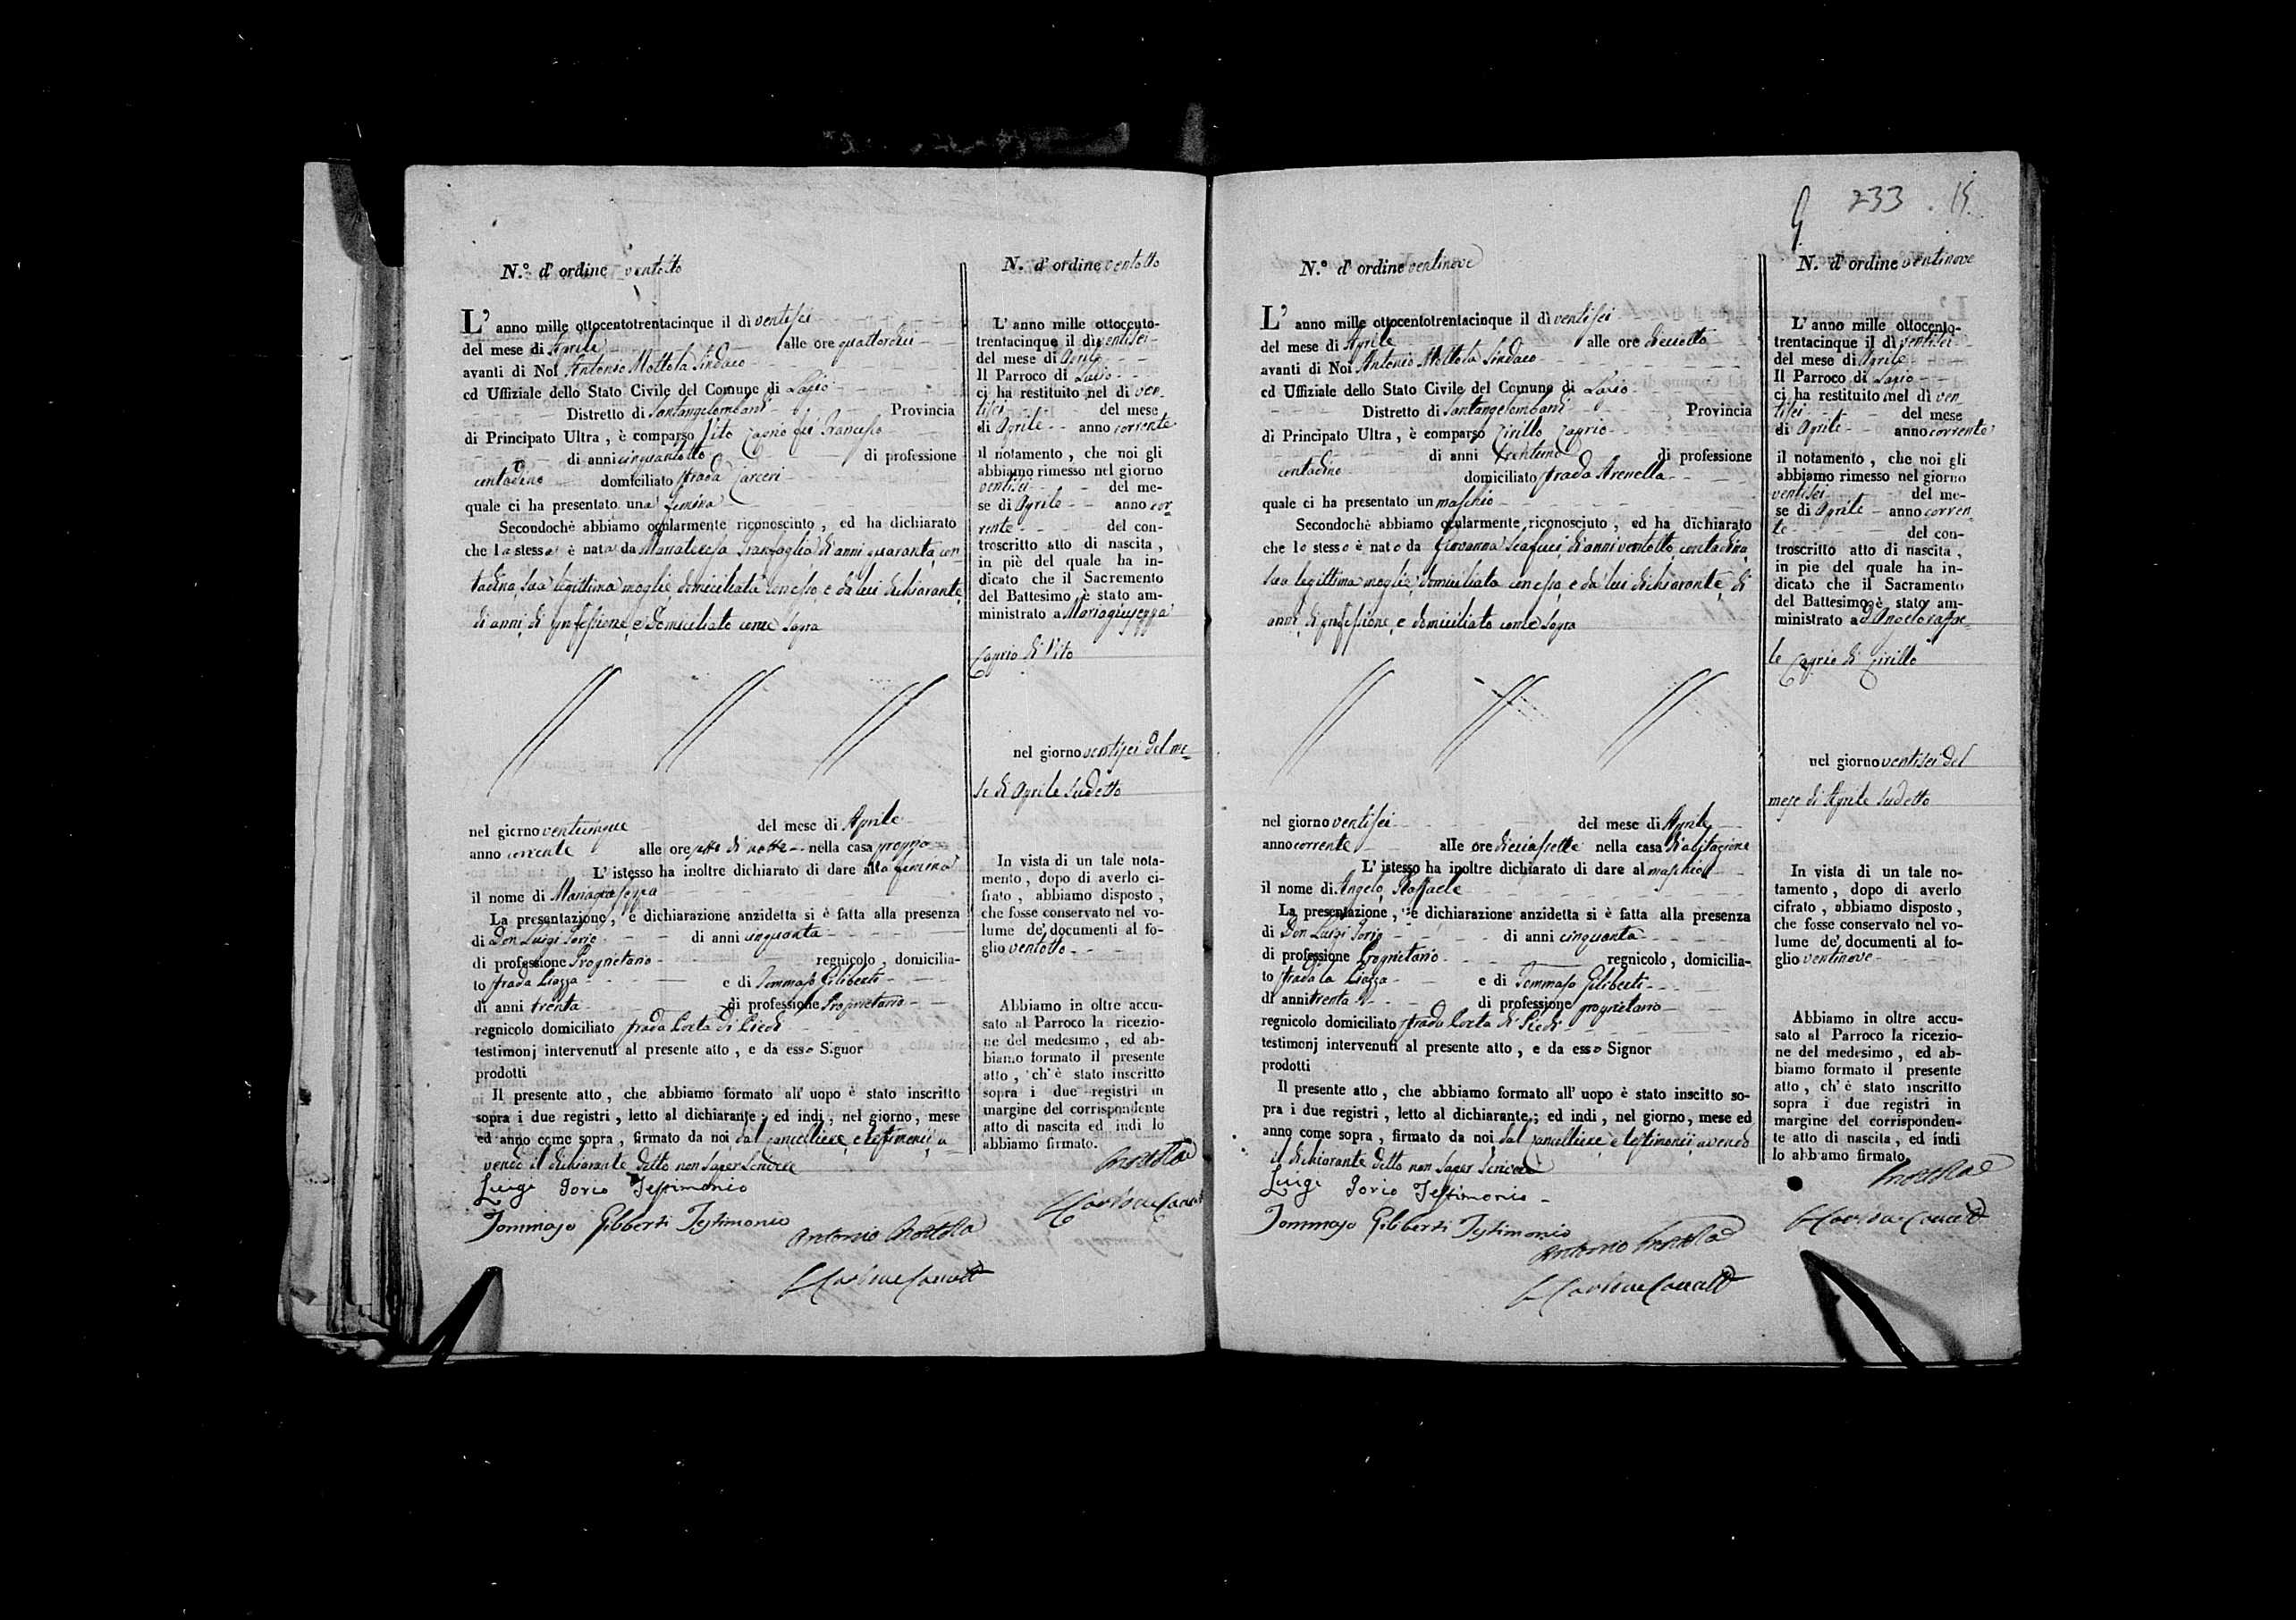 233 . 15.
N.° d' ordine ventotto
L' anno mille ottocentotrentacinque il dì ventisei
del mese di Aprile alle ore quattordici
avanti di Noi Antonio Mottola Sindaco
ed Uffiziale dello Stato Civile del Comune di Lapio
Distretto di Santangelombardi Provincia
di Principato Ultra, è comparso Vito Caprio fu Francesco
di anni cinquantotto di professione
contadino domiciliato strada Carceri
quale ci ha presentato una femina
Secondochè abbiamo ocularmente riconosciuto, ed ha dichiarato
che la stessa è nata da Mariateresa Tranfaglia di anni quaranta con-
tadina, sua legittima moglie, domiciliata con esso, e da lui dichiarante,
di anni, di professione, e domiciliato come sopra
nel giorno venticinque del mese di Aprile
anno corrente alle ore sette di notte nella casa propria
L' istesso ha inoltre dichiarato di dare alla femina
il nome di Mariagiuseppa
La presentazione, e dichiarazione anzidetta si è fatta alla presenza
di Don Luigi Iorio di anni cinquanta
di professione Proprietario regnicolo, domicilia-
to strada Piazza e di Tommaso Giliberti
di anni trenta di professione Proprietario
regnicolo domiciliato strada Porta di Piedi
testimonj intervenuti al presente atto, e da esso Signor
prodotti
Il presente atto, che abbiamo formato all' uopo è stato inscritto
sopra i due registri, letto al dichiarante; ed indi, nel giorno, mese
ed anno come sopra, firmato da noi dal Cancelliere, e testimonii a-
vendo il dichiarante detto non saper scrivere
Luigi Iorio Testimonio
Tommaso Giliberti Testimonio
Antonio Mottola
N. d' ordine ventotto
L' anno mille ottocento-
trentacinque il dì ventisei
del mese di Aprile
Il Parroco di Lapio
ci ha restituito nel dì ven-
tisei del mese
di Aprile anno corrente
il notamento, che noi gli
abbiamo rimesso nel giorno
ventisei del me-
se di Aprile anno cor-
rente del con-
troscritto atto di nascita,
in piè del quale ha in-
dicato che il Sacremento
del Battesimo è stato am-
ministrato a Mariagiuseppa
Caprio di Vito
nel giorno ventisei del me-
se di Aprile sudetto
In vista di un tale nota-
mento, dopo di averlo ci-
frato, abbiamo disposto,
che fosse conservato nel vo-
lume de' documenti al fo-
glio ventotto
Abbiamo in oltre accu-
sato al Parroco la ricezio-
ne del medesimo, ed ab-
biamo formato il presente
atto, ch' è stato inscritto
sopra i due registri in
margine del corrispondente
atto di nascita ed indi lo
abbiamo firmato.
Mottola
N.° d' ordine ventinove
L' anno mille ottocentotrentacinque il dì ventisei
del mese di Aprile alle ore diciotto
avanti di Noi Antonio Mottola Sindaco
ed Uffiziale dello Stato Civile del Comune di Lapio
Distretto di Santangelombardi Provincia
di Principato Ultra, è comparso Cirillo Caprio
di anni trentuno di professione
contadino domiciliato strada Arenella
quale ci ha presentato un maschio
Secondochè abbiamo ocularmente riconosciuto, ed ha dichiarato
che lo stesso è nato da Giovanna Scafuci, di anni ventotto, contadina,
sua legittima moglie, domiciliata con esso, e da lui dichiarante, di
anni, di professione, e domiciliato come sopra
nel giorno ventisei del mese di Aprile
anno corrente alle ore diciassette nella casa d'abitazione
L' istesso ha inoltre dichiarato di dare al maschio
il nome di Angelo Raffaele
La presentazione, e dichiarazione anzidetta si è fatta alla presenza
di Don Luigi Iorio di anni cinquanta
di professione Proprietario regnicolo, domicilia-
to strada la Piazza e di Tommaso Giliberti
di anni trenta di professione proprietario
regnicolo domiciliato strada Porta di Piedi
testimonj intervenuti al presente atto, e da esso Signor
prodotti
Il presente atto, che abbiamo formato all' uopo è stato inscitto so-
pra i due registri, letto al dichiarante; ed indi, nel giorno, mese ed
anno come sopra, firmato da noi dal Cancelliere, e testimonii avendo
il dichiarante detto non saper scrivere
Luigi Iorio Testimonio
Tommaso Giliberti Testimonio
Antonio Mottola
N. d' ordine ventinove
L' anno mille ottocento-
trentacinque il dì ventisei
del mese di Aprile
Il Parroco di Lapio
ci ha restituito nel dì ven-
tisei del mese
di Aprile anno corrente
il notamento, che noi gli
abbiamo rimesso nel giorno
ventisei del me-
se di Aprile anno corren-
te del con-
troscritto atto di nascita,
in pie del quale ha in-
dicato che il Sacramento
del Battesimo è stato am-
ministrato ad Angeloraffae-
le Caprio di Cirillo
nel giorno ventisei del
mese di Aprile sudetto
In vista di un tale no-
tamento, dopo di averlo
cifrato, abbiamo disposto,
che fosse conservato nel vo-
lume de' documenti al fo-
glio ventinove
Abbiamo in oltre accu-
sato al Parroco la ricezio-
ne del medesimo, ed ab-
biamo formato il presente
atto, ch' è stato inscritto
sopra i due registri in
margine del corrisponden-
te atto di nascita, ed indi
lo abbiamo firmato.
Mottola